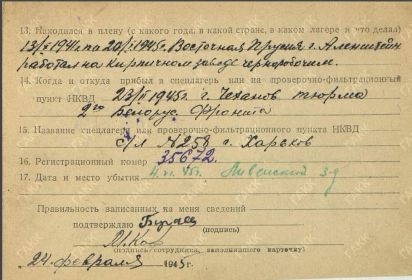 13. Находился в плену (с какого года, в какой стране, в каком лагере и что делал)
1941 по 20/I 1945г. Восточная Прусия г. Аленштейн
работал на кирпичном заводе чернорабочим.
14. Когда и откуда прибыл в спецлагерь или на проверочно-фильтрационный
пункт НКВД 23/II 1945г. г. Чеханов тюрма
2го Белорус. Фронта
15. Название спецлагеря или проверочно-фильтрационного пункта НКВД
с/л №258 г. Харьков
16. Регистрационный номер 35672.
17. Дата и место убытия 45г.
Правильность записанных на меня сведений
подтверждаю
(подпись)
(подпись сотрудника, заполнявшего карточку)
24 февраля 1945 г.